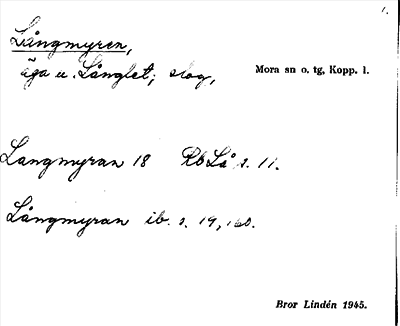 1.
Långmyren,
äga u. Långlet; slog,
Mora sn o. tg, Kopp. l.
Langmyran 18 Rb Lå s. 11.
Långmyran ib. s. 19, 160.
Bror Lindén 1945.